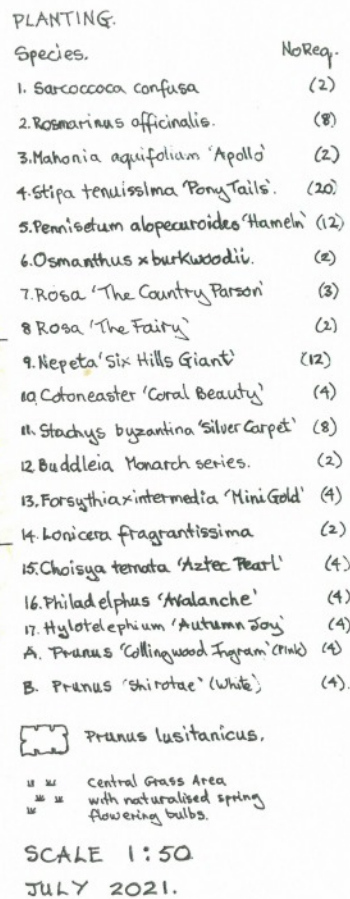 PLANTING.
Species. No Req.
1. Sarcoccoca confusa (2)
2. Rosmarinus officinalis. (8)
3. Mahonia aquifolium 'Apollo' (2)
4. Stipa tenuissima 'Pony Tails'. (20)
5. Pennisetum alopecuroides 'Hameln' (12)
6. Osmanthus x burkwoodii. (2)
7. Rosa 'The Country Parson' (3)
8 Rosa 'The Fairy' (2)
9. Nepeta 'Six Hills Giant' (12)
10. Cotoneaster 'Coral Beauty' (4)
11. Stachys byzantina 'Silver Carpet' (8)
12 Buddleia Monarch series. (2)
13. Forsythia x intermedia 'Mini Gold' (4)
14. Lonicera fragrantissima (2)
15. Choisya ternata 'Aztec Pearl' (4)
16. Philadelphus 'Avalanche' (4)
17. Hylotelephium 'Autumn Joy' (4)
A. Prunus 'Collingwood Ingram' (Pink) (4)
B. Prunus 'Shirotae' (White) (4).
Prunus lusitanicus.
Central Grass Area
with naturalised spring
flowering bulbs.
SCALE 1:50
JULY 2021.